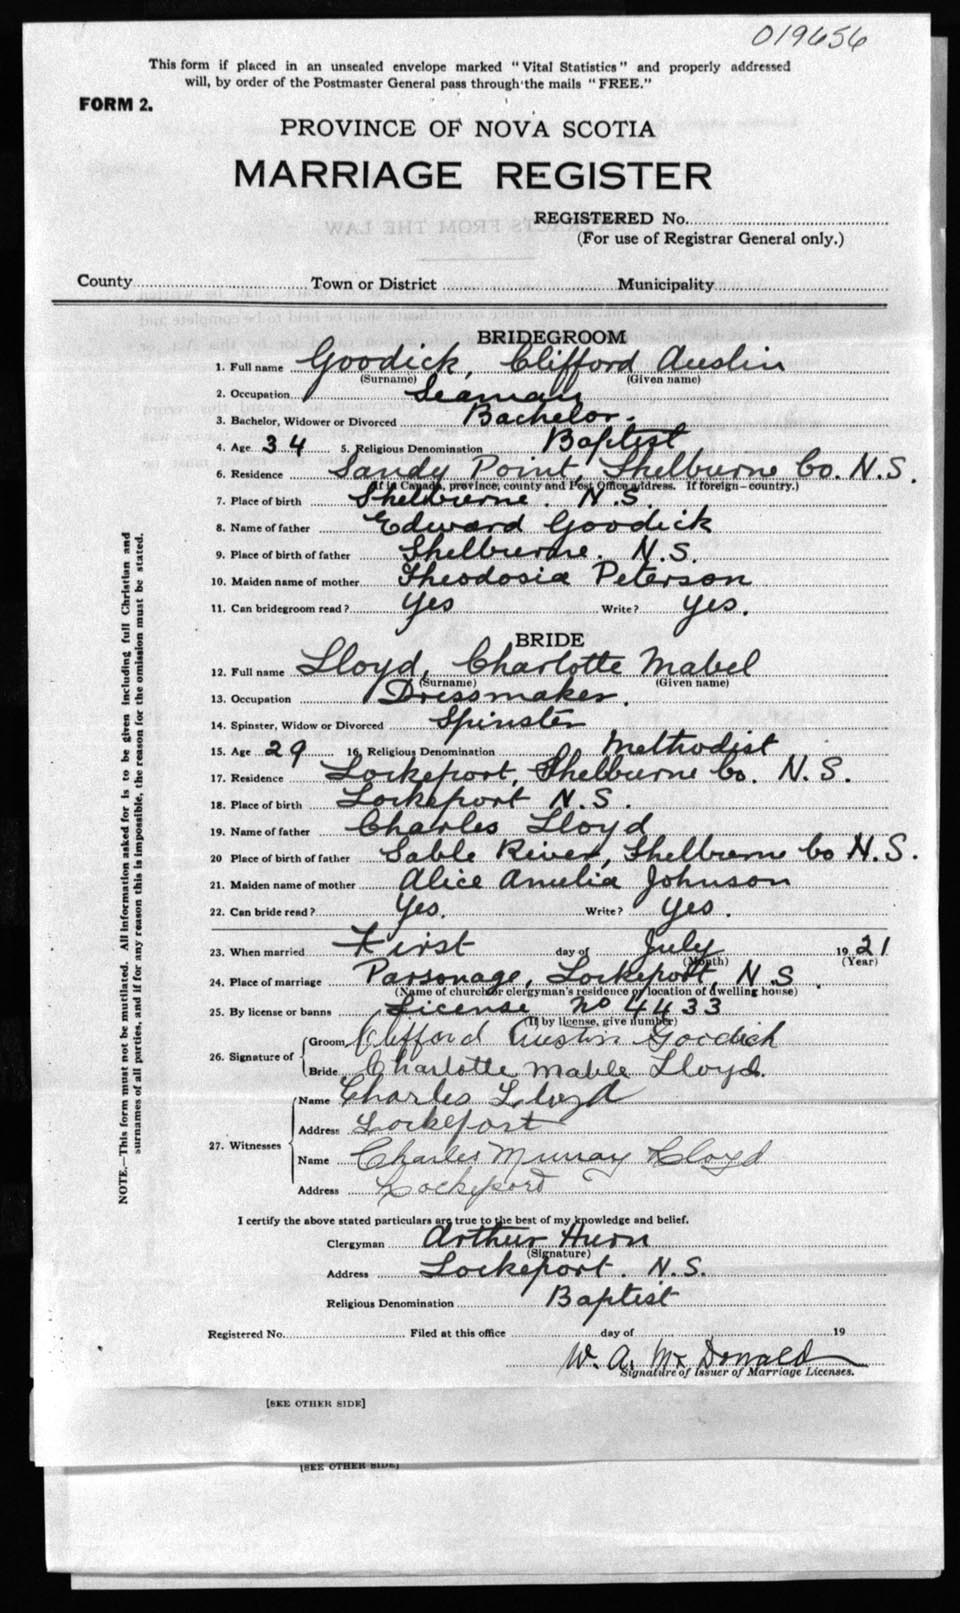 019656
This form if placed in an unsealed envelope marked "Vital Statistics" and properly addressed
will, by order of the Postmaster General pass through the mails "FREE."
FORM 2.
PROVINCE OF NOVA SCOTIA
MARRIAGE REGISTER
REGISTERED No.
(For use of Registrar General only.)
County Town or District Municipality
BRIDEGROOM
1. Full name Goodick, Clifford Austin
(Surname) (Given name)
2. Occupation Seaman
3. Bachelor, Widower or Divorced Bachelor.
4. Age 34 5. Religious Denomination Baptist
6. Residence Sandy Point, Shelburne Co. N.S.
(If in Canada, province, county and Post Office address. If foreign—country.)
7. Place of birth Shelburne. N.S.
8. Name of father Edward Goodick
9. Place of birth of father Shelburne. N.S.
10. Maiden name of mother Theodosia Peterson
11. Can bridegroom read? Yes Write? Yes.
BRIDE
12. Full name Lloyd, Charlotte Mabel
(Surname) (Given name)
13. Occupation Dressmaker.
14. Spinster, Widow or Divorced Spinster
15. Age 29 16. Religious Denomination Methodist
17. Residence Lockeport, Shelburne Co. N.S.
18. Place of birth Lockeport N.S.
19. Name of father Charles Lloyd
20 Place of birth of father Sable River, Shelburne Co N.S.
21. Maiden name of mother Alice Amelia Johnson
22. Can bride read? Yes. Write? Yes.
23. When married First day of July 1921
(Month) (Year)
24. Place of marriage Parsonage, Lockeport, N.S.
(Name of church or clergyman's residence or location of dwelling house)
25. By license or banns License No 4433
(If by license, give number)
26. Signature of Groom Clifford Austin Goodick
Bride Charlotte Mable Lloyd.
27. Witnesses Name Charles Lloyd
Address Lockeport
Name Charles Murray Lloyd
Address Lockeport
I certify the above stated particulars are true to the best of my knowledge and belief.
Clergyman Arthur Huon
(Signature)
Address Lockeport. N.S.
Religious Denomination Baptist
Registered No. Filed at this office day of 19
W. A. Mc Donald
Signature of Issuer of Marriage Licenses.
[SEE OTHER SIDE]
[SEE OTHER SIDE]
NOTE.—This form must not be mutilated. All information asked for is to be given including full Christian and
surnames of all parties, and if for any reason this is impossible, the reason for the omission must be stated.